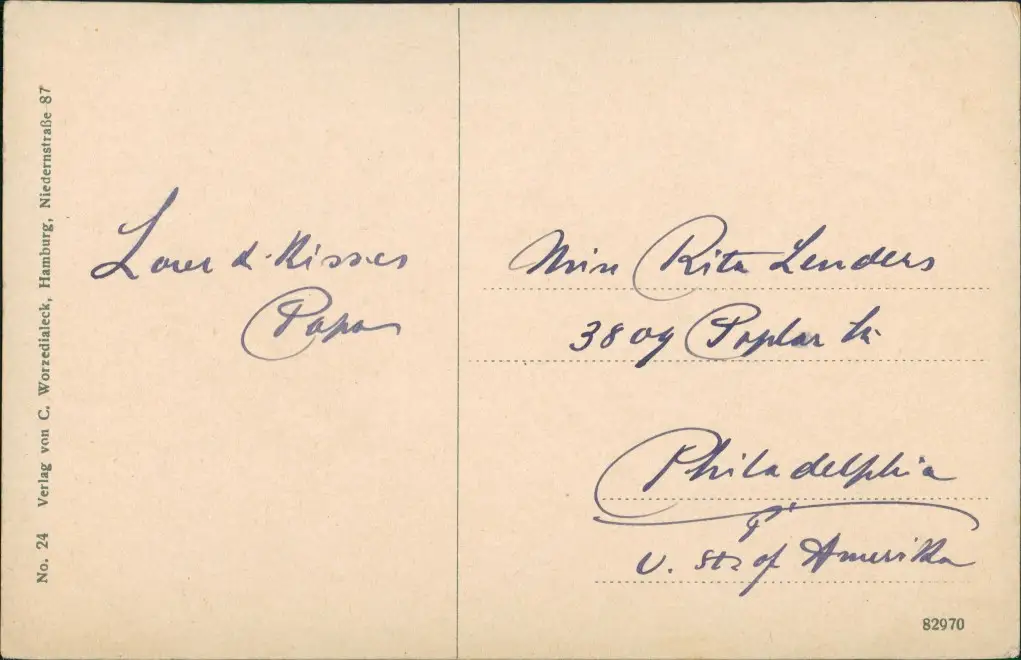 No. 24 Verlag von C. Worzedialeck, Hamburg, Niedernstraße 87
Love & Kisses
Papa
Miss Rita Lenders
3809 Poplar St.
Philadelphia
Pa
U. Sts of Amerika
82970